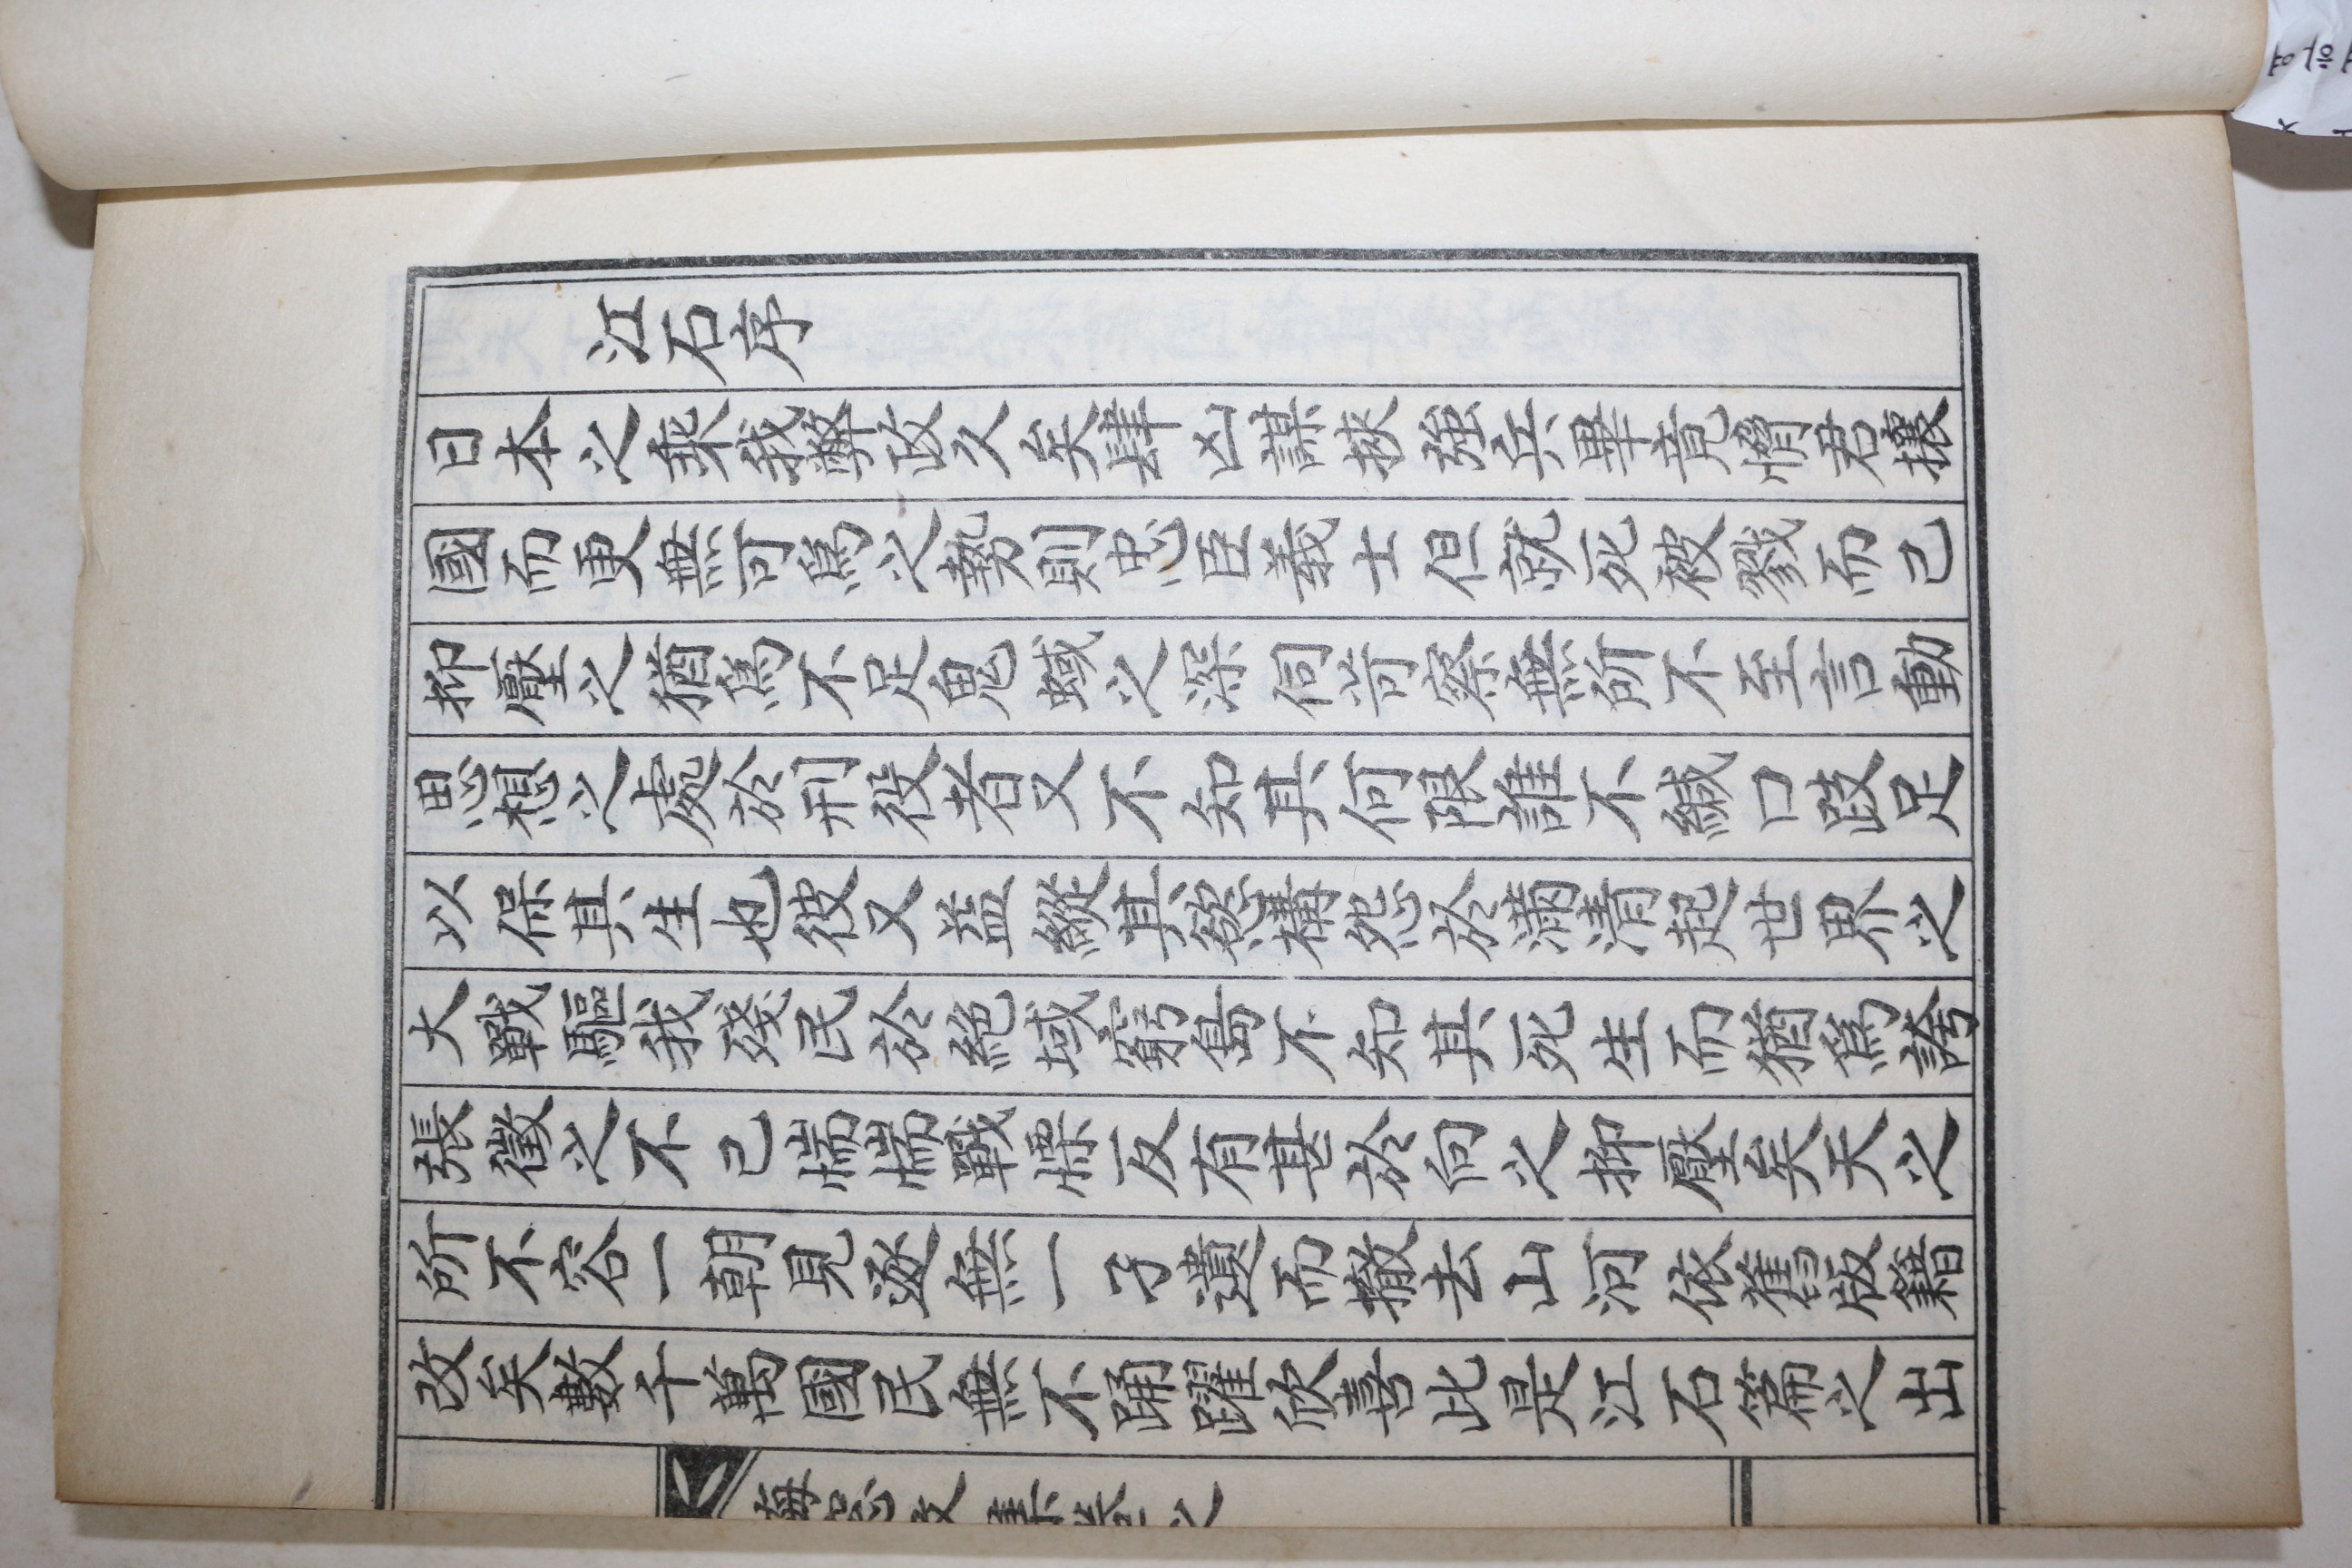 江石序
日本之乘我弊政久矣肆凶謀挾強兵畢竟君攘
國而更無可爲之勢則忠臣義士但就死被戮而已
抑壓之猶爲不足鬼蜮之深伺苛察無所不至言動
思想之處於刑役者又不知其何限誰不緘口跂足
以保其生也彼又益縱其慾構怨於滿清起世界之
大戰驅我殘民於絶域窮島不知其死生而猶爲誇
張徵之不已惴惴戰慄反有甚於向之抑壓矣天之
所不容一朝見逐無一孑遺而撤去山河依舊版籍
改矣數千萬國民無不踊躍欣喜此是江石之出
文集卷之